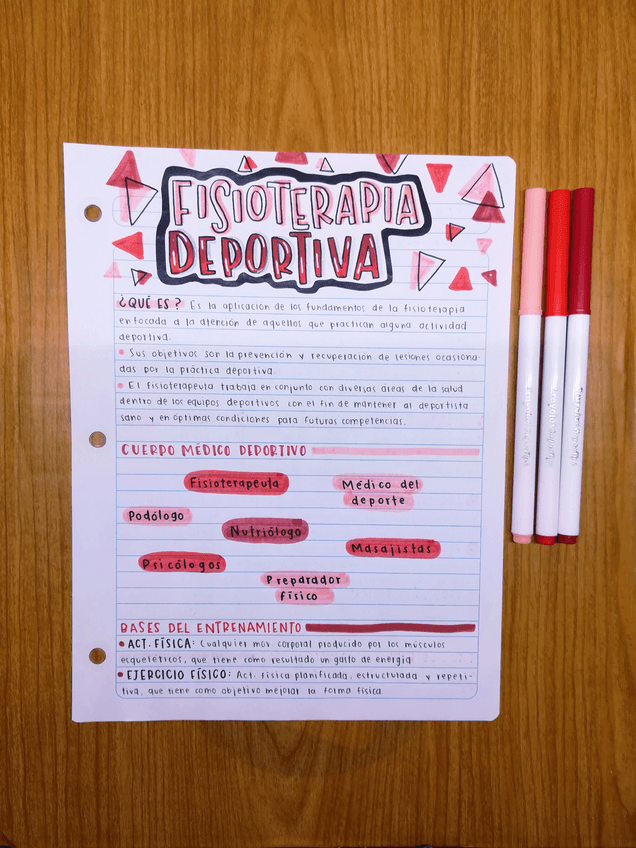 FISIOTERAPIA
DEPORTIVA
¿QUÉ ES? Es la aplicación de los fundamentos de la fisioterapia
enfocada a la atención de aquellos que practican alguna actividad
deportiva.
• Sus objetivos son la prevención y recuperación de lesiones ocasiona-
das por la práctica deportiva.
• El fisioterapeuta trabaja en conjunto con diversas áreas de la salud
dentro de los equipos deportivos con el fin de mantener al deportista
sano y en óptimas condiciones para futuras competencias.
CUERPO MÉDICO DEPORTIVO
Fisioterapeuta
Médico del
deporte
Podólogo
Nutriólogo
Masajistas
Psicólogos
Preparador
físico
BASES DEL ENTRENAMIENTO
• ACT. FÍSICA: Cualquier mov corporal producido por los músculos
esqueléticos, que tiene como resultado un gasto de energía
• EJERCICIO FÍSICO: Act. física planificada, estructurada y repeti-
tiva, que tiene como objetivo mejorar la forma física.